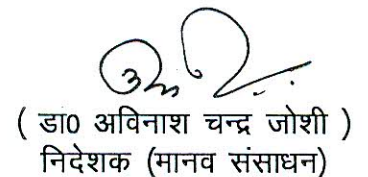 ( डा0 अविनाश चन्द्र जोशी )
निदेशक (मानव संसाधन)